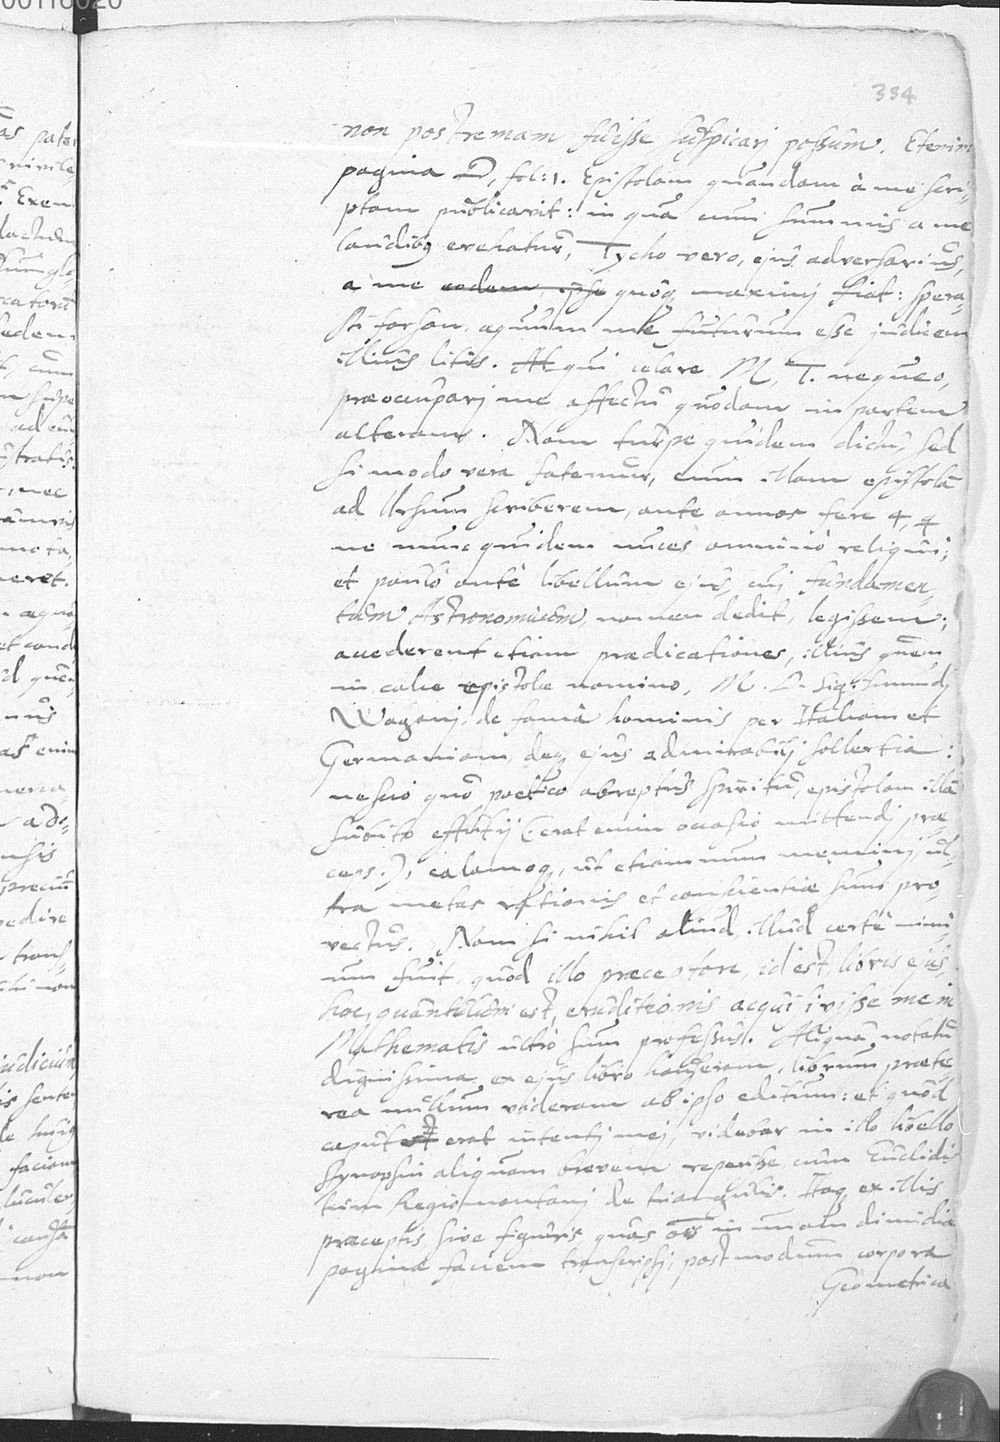 00116020
334
non postremam fuisse suspicarj possum. Etenim
pagina D, fol: 1. Epistolam quandam à me scri-
ptam publicavit: in quâ cum summis a me
laudibq evehatur, Tycho vero, ejus adversarius,
a me eodem ipse quoq maximj fiat: spera-
sti forsan, aequum me futurum esse judicem
illius litis. At qui celare M. T. nequeo,
praeoccuparj me affectu quodam in partem
alteram. Nam turpe quidem dictu, sed
si modo vera fatemur, cum illam epistolā
ad Ursum scriberem, ante annos fere 4, q
ne nunc quidem nuces omninò reliqui;
et paulò antè libellum ejus, cuj fundamen-
tum Astronomicum, nomen dedit, legissem;
accederent etiam praedicationes, illius quem
in calce epistolae nomino, M. D. Sigismundj
Wagarij, de famâ hominis per Italiam et
Germaniam, deq ejus admirabilj sollertia:
nescio quo poëtico abreptus spiritu, epistolam illā
subito effutij (: erat enim occasio mittendj prae
ceps:), calamoq, ut etiamnum meminj, ul-
tra metas rationis et conscientiae sum pro-
vectus. Nam si nihil aliud, illud certè nimi
um fuit, quod illo praeceptore, id est, libris ejus,
hoc, quantulum est, eruditionis acquisivisse me in
Mathematis ultrò sum professus. Aliqua notatu
dignissima ex ejus libro hauseram, librum praete-
rea nullum videram ab ipso editum: et quod
caput erat intentj mej, videbar in illo libello
synopsin aliquam brevem reperisse cum Euclidis
tum Regiomontanj de triangulis. Itaq ex illis
praeceptis, sive figuris, quas oēs in unam dimidiae
paginae faciem transcripsj, postmodum corpora
Geometrica